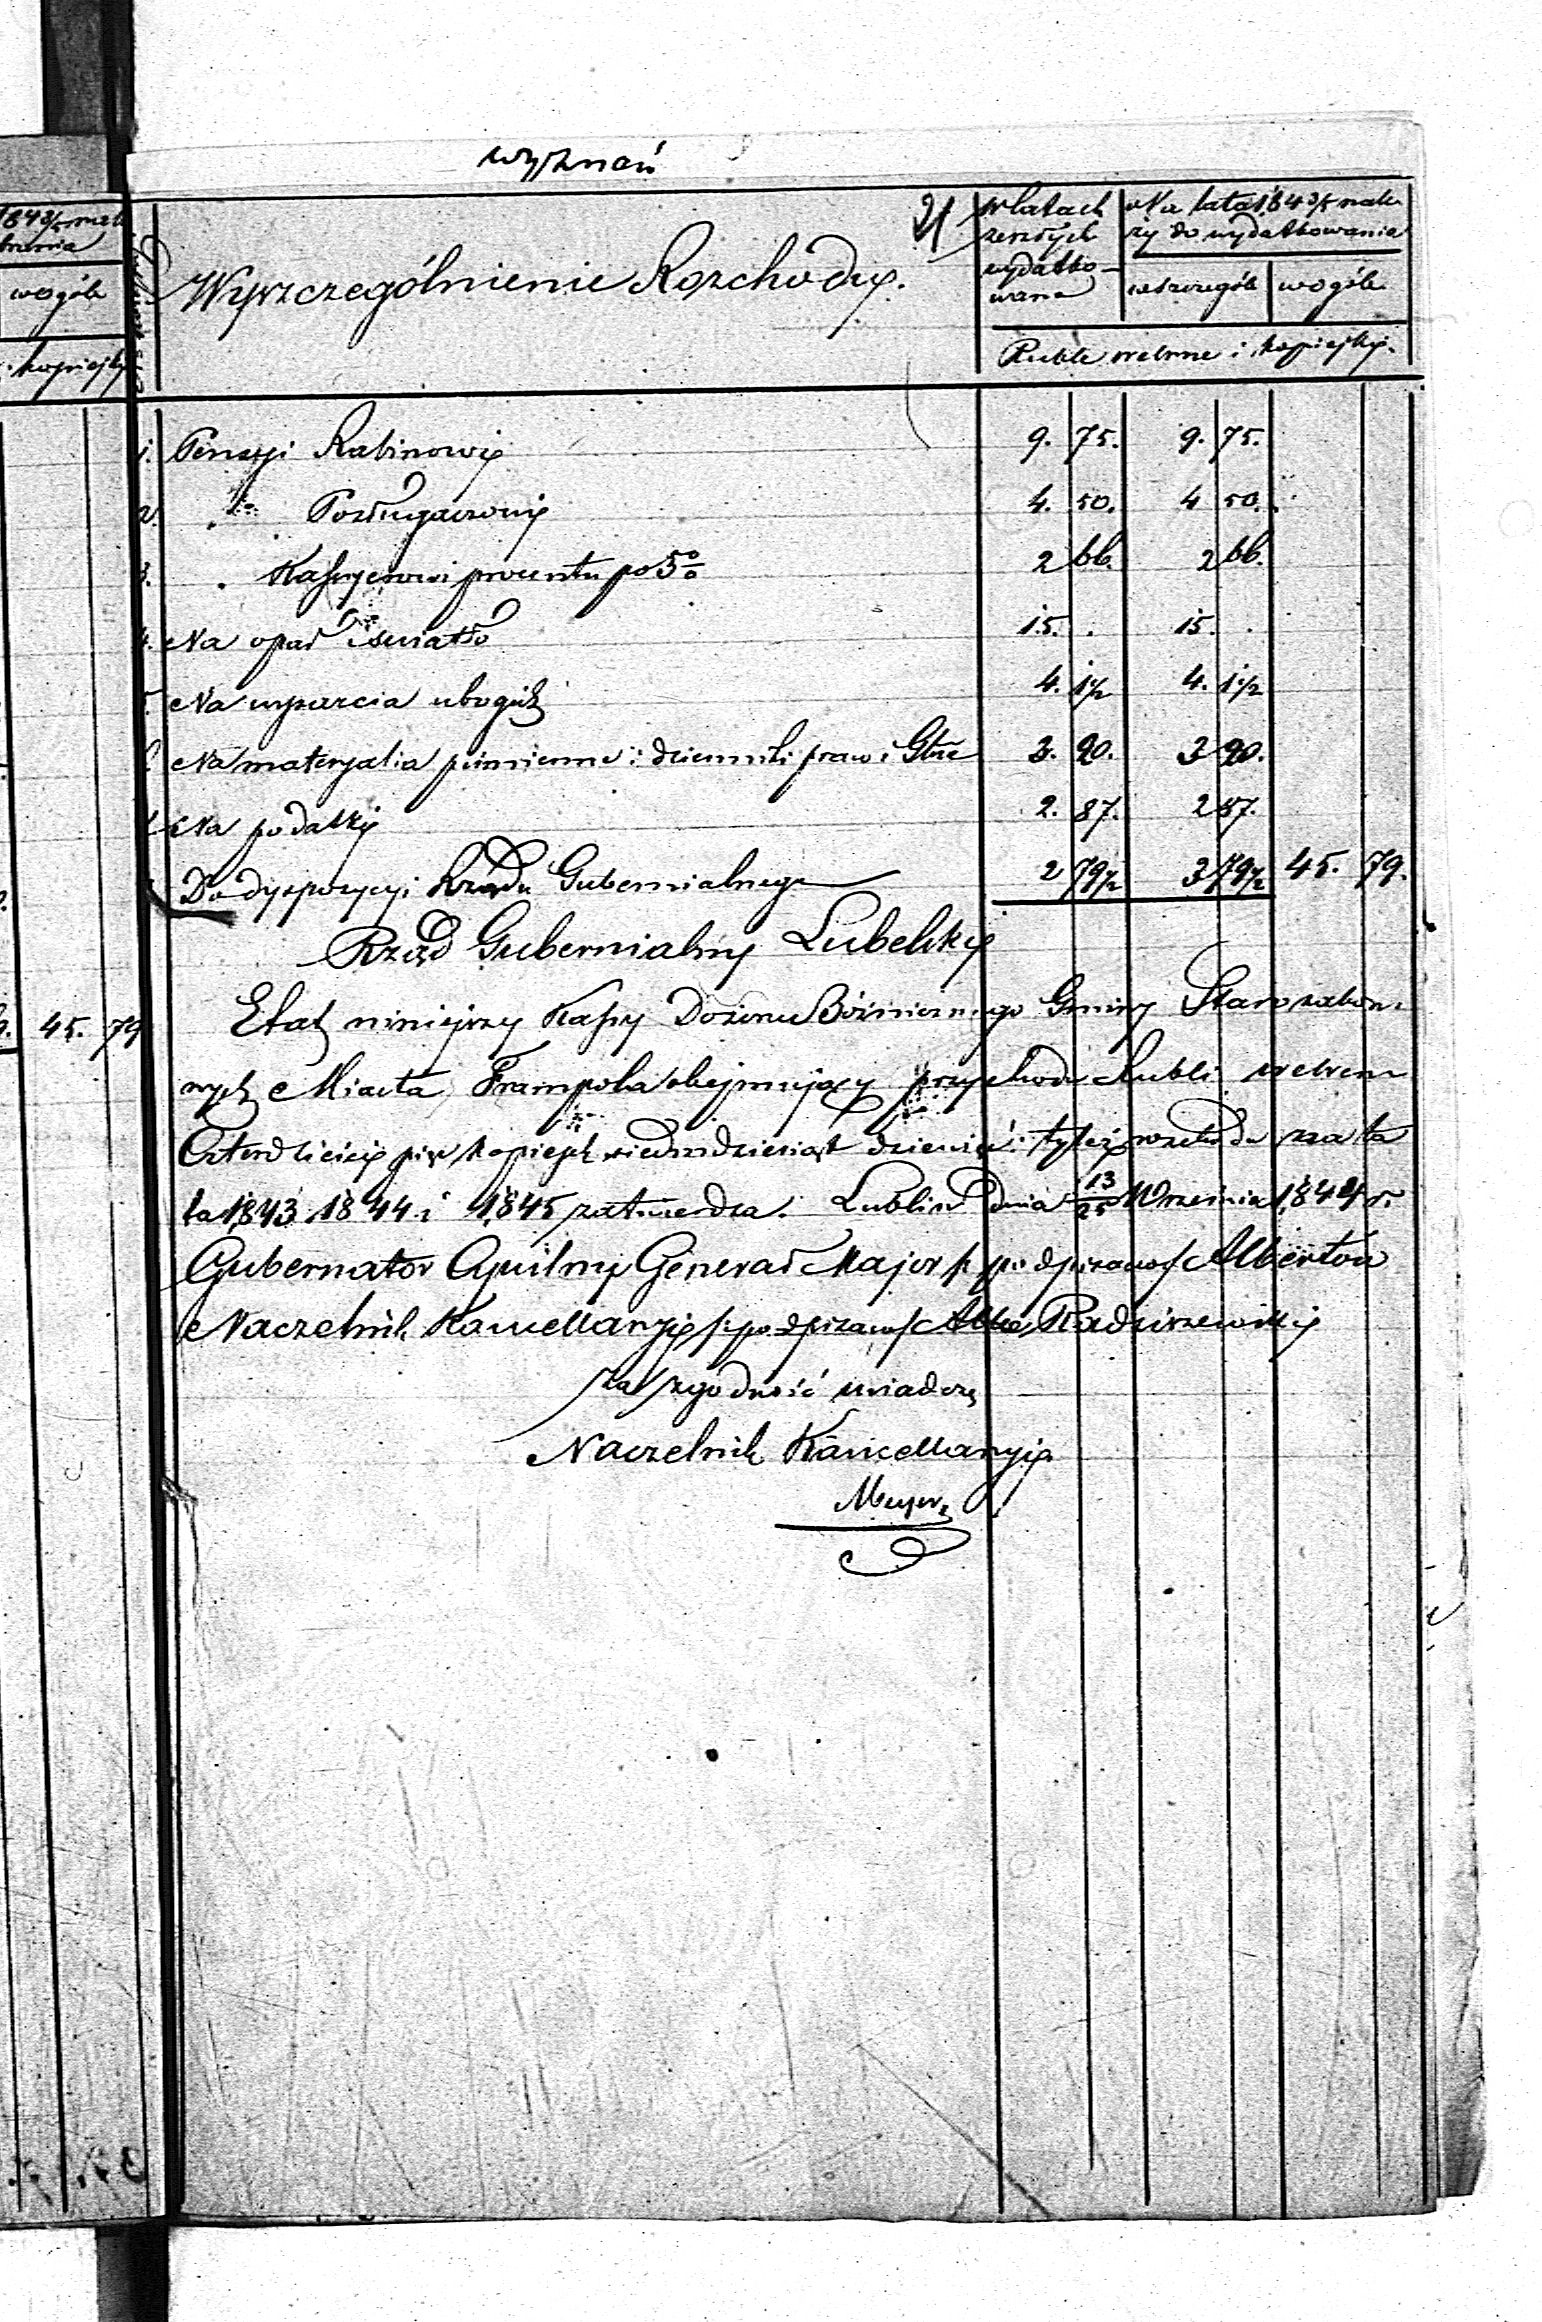 wyznań
1843/5 nale
brania
wogóle
kopiejky
45. 79
Wyszczegulnienie Rozchody.
21
w latach
zeszłych
wydatko-
wano
Na lata 1843/5 nale
ży do wydatkowania
wszczególe wogóle
Ruble srebrne i kopiejky.
1. Pensyi Rabinowi 9. 75. 9. 75.
2. " Posługaczowi 4. 50. 4 50.
3. " Kassyerowi procentu po 5% 2 66. 2 66.
4. Na opał i swiatło 15. . 15. .
5. Na wsparcia ubogich 4. 1½ 4. 1½
Na materyalia piśmienne i dzienniki praw i Gbre 3. 20. 3 20.
Na podatky 2. 87. 2 87.
Do dyspozycyi Rządu Gubernialnego 2 79½ 3 79½ 45. 79.
Rząd Gubernialny Lubelsky
Etat niniejszy Kassy Dozoru Bóżnicznego Gminy Starozakon-
nych Miasta Frampola obejmujący przychodu Rubli srebrem
Czterdzieście pięć kopiejek siedmdziesiąt dziewięć i tyleż rozchodu na la
ta 1843 1844 i 1845 zatwierdza. Lublin dnia 13/25 Września 1844 r.
Gubernator Cywilny Generał Major /:podpisano:/ Albertów
Naczelnik Kancellaryi /:podpisano:/ Radziszewski
Za zgodność świadczę
Naczelnik Kancellaryi
Meyer